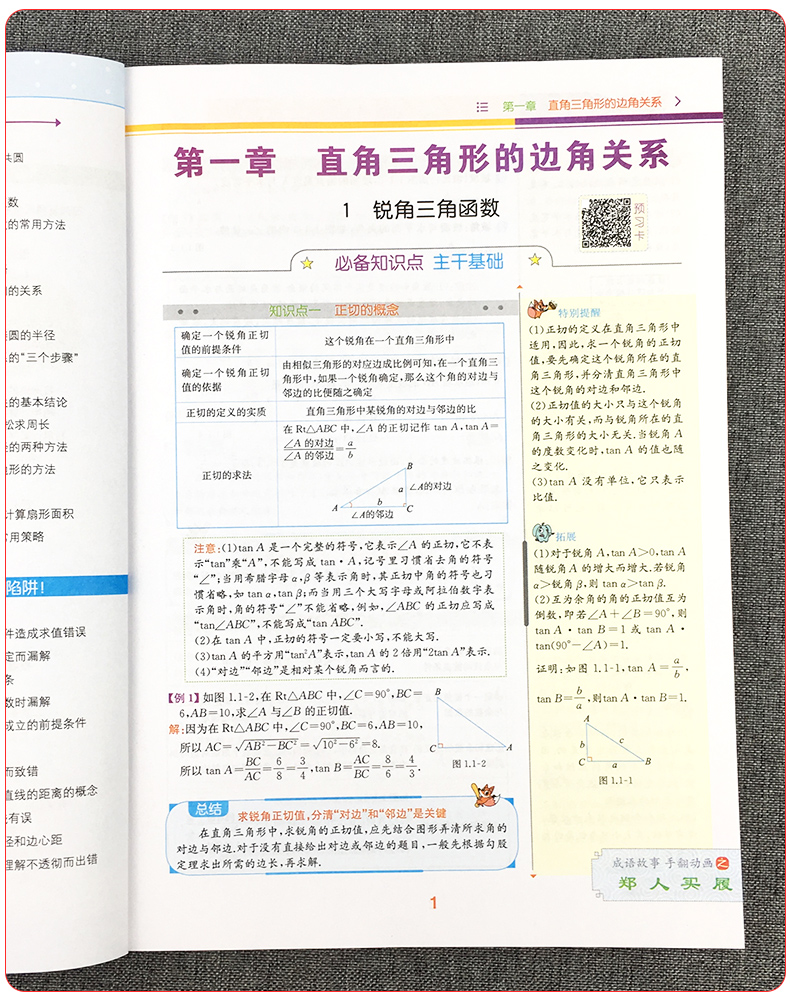 共圆
数
的常用方法
的关系
共圆的半径
的“三个步骤”
的基本结论
松求周长
的两种方法
形的方法
计算扇形面积
常用策略
陷阱!
件造成求值错误
定而漏解
条
数时漏解
成立的前提条件
而致错
直线的距离的概念
有误
径和边心距
理解不透彻而出错
第一章 直角三角形的边角关系
第一章 直角三角形的边角关系
1 锐角三角函数
预习卡
必备知识点 主干基础
知识点一 正切的概念
确定一个锐角正切
值的前提条件
这个锐角在一个直角三角形中
确定一个锐角正切
值的依据
由相似三角形的对应边成比例可知,在一个直角三
角形中,如果一个锐角确定,那么这个角的对边与
邻边的比便随之确定
正切的定义的实质
直角三角形中某锐角的对边与邻边的比
正切的求法
在 Rt△ABC 中,∠A 的正切记作 tan A,tan A=
∠A 的对边/∠A 的邻边=a/b
B
a
∠A的对边
A
b
C
∠A的邻边
注意:(1)tan A 是一个完整的符号,它表示∠A 的正切,它不表
示“tan”乘“A”,不能写成 tan·A,记号里习惯省去角的符号
“∠”;当用希腊字母α,β等表示角时,其正切中角的符号也习
惯省略,如 tan α,tan β;而当用三个大写字母或阿拉伯数字表
示角时,角的符号“∠”不能省略,例如,∠ABC 的正切应写成
“tan∠ABC”,不能写成“tan ABC”.
(2)在 tan A 中,正切的符号一定要小写,不能大写.
(3)tan A 的平方用“tan²A”表示,tan A 的 2 倍用“2tan A”表示.
(4)“对边”“邻边”是相对某个锐角而言的.
【例 1】如图 1.1-2,在 Rt△ABC 中,∠C=90°,BC=
6,AB=10,求∠A 与∠B 的正切值.
解:因为在 Rt△ABC 中,∠C=90°,BC=6,AB=10,
所以 AC=√(AB²-BC²)=√(10²-6²)=8.
所以 tan A=BC/AC=6/8=3/4,tan B=AC/BC=8/6=4/3.
B
C
A
图 1.1-2
总结
求锐角正切值,分清“对边”和“邻边”是关键
在直角三角形中,求锐角的正切值,应先结合图形弄清所求角的
对边与邻边.对于没有直接给出对边或邻边的题目,一般先根据勾股
定理求出所需的边长,再求解.
特别提醒
(1)正切的定义在直角三角形中
适用,因此,求一个锐角的正切
值,要先确定这个锐角所在的直
角三角形,并分清直角三角形中
这个锐角的对边和邻边.
(2)正切值的大小只与这个锐角
的大小有关,而与锐角所在的直
角三角形的大小无关.当锐角 A
的度数变化时,tan A 的值也随
之变化.
(3)tan A 没有单位,它只表示
比值.
拓展
(1)对于锐角 A,tan A>0,tan A
随锐角 A 的增大而增大.若锐角
α>锐角 β,则 tan α>tan β.
(2)互为余角的角的正切值互为
倒数,即若∠A+∠B=90°,则
tan A·tan B=1 或 tan A·
tan(90°-∠A)=1.
证明:如图 1.1-1,tan A=a/b,
tan B=b/a,则tan A·tan B=1.
A
b
c
C
a
B
图 1.1-1
成语故事 手翻动画之
郑人买履
1